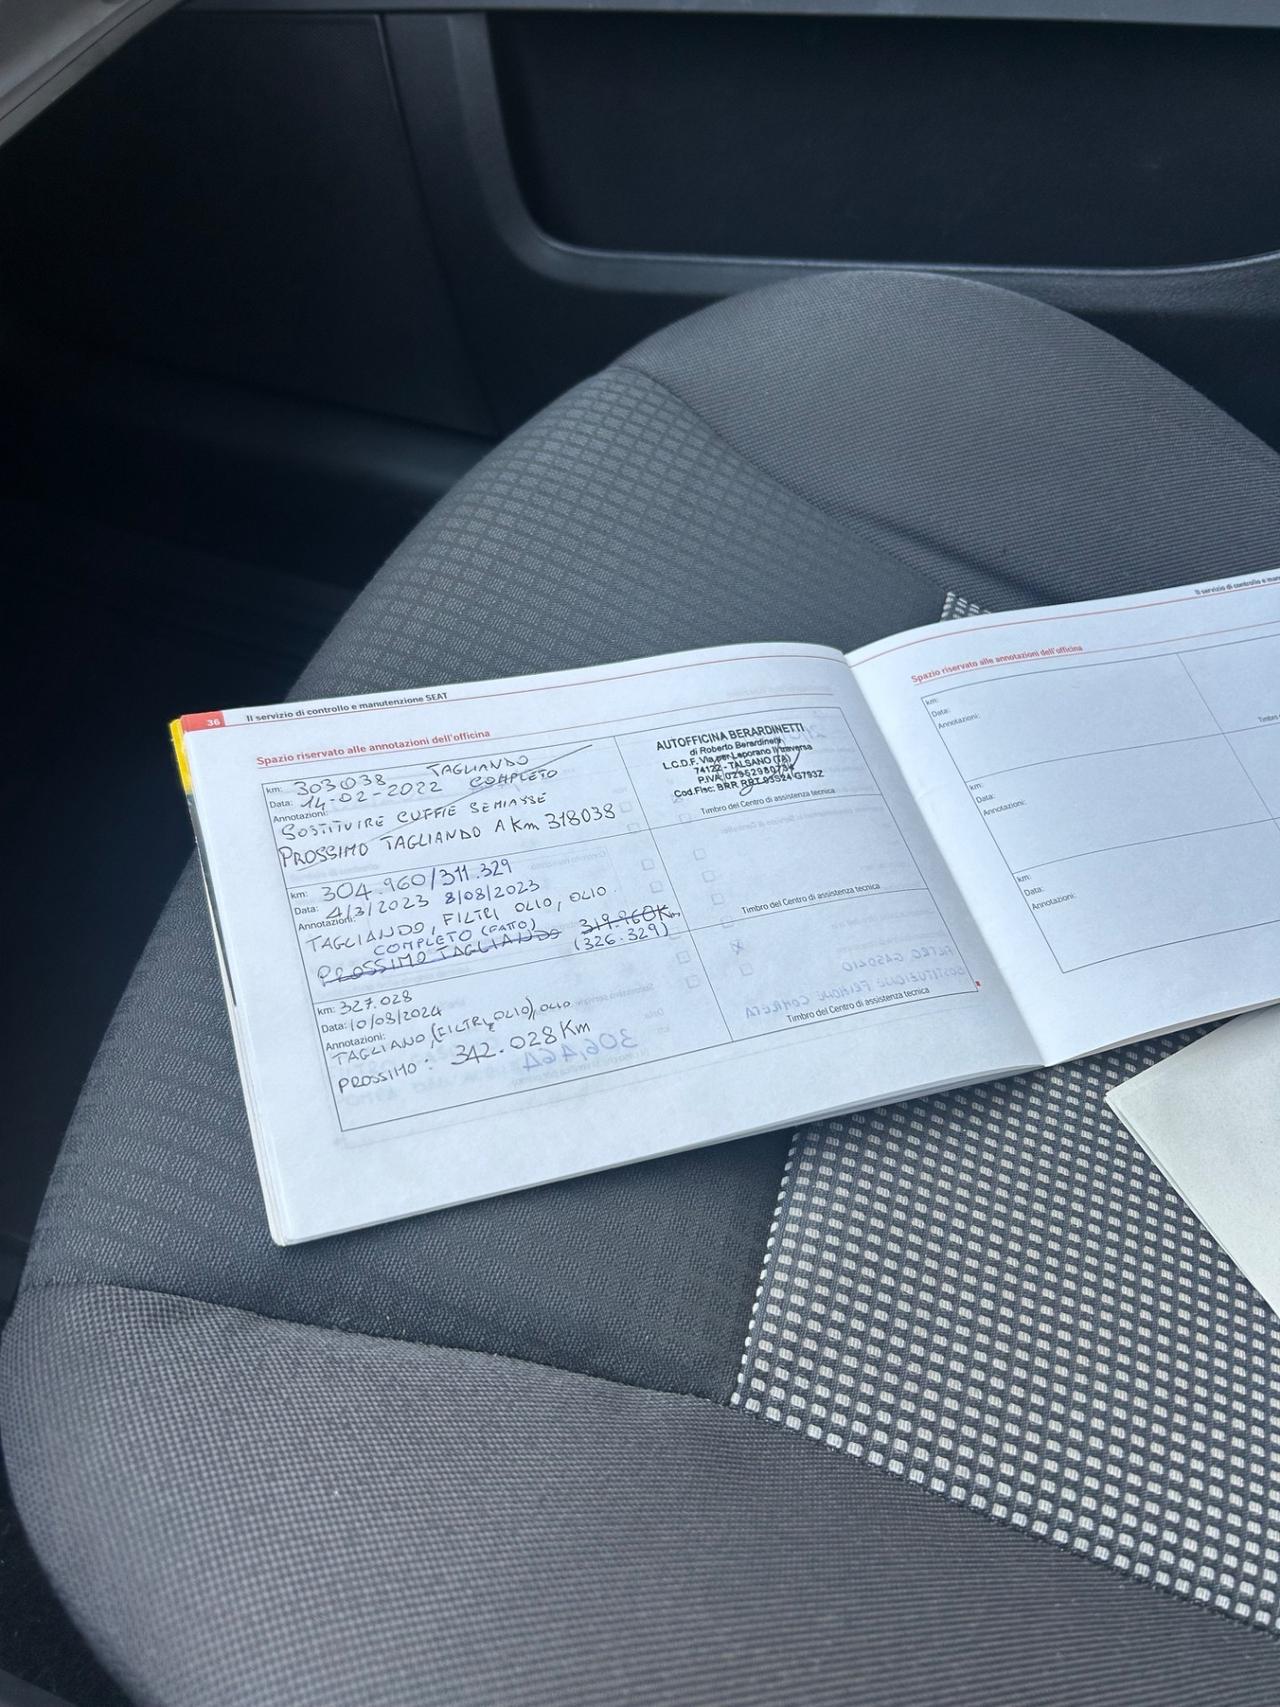 36 Il servizio di controllo e manutenzione SEAT
Spazio riservato alle annotazioni dell'officina
km: 303038 TAGLIANDO
Data: 14-02-2022 COMPLETO
Annotazioni:
SOSTITUIRE CUFFIE SEMIASSE
PROSSIMO TAGLIANDO A Km 318038
AUTOFFICINA BERARDINETTI
di Roberto Berardinetti
L.C.D.F. Via per Leporano II traversa
74122 - TALSANO (TA)
Timbro del Centro di assistenza tecnica
km: 304.960/311.329
Data: 4/3/2023 8/08/2023
Annotazioni:
TAGLIANDO, FILTRI OLIO, OLIO.
COMPLETO (FATTO)
PROSSIMO TAGLIANDO 319.960Km
(326.329)
Timbro del Centro di assistenza tecnica
km: 327.028
Data: 10/08/2024
Annotazioni:
TAGLIANO, (FILTRI, OLIO), OLIO
PROSSIMO: 342.028 Km
Timbro del Centro di assistenza tecnica
Il servizio di controllo e
Spazio riservato alle annotazioni dell'officina
km:
Data:
Annotazioni:
km:
Data:
Annotazioni:
km:
Data:
Annotazioni: